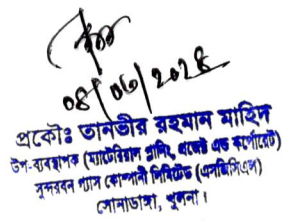 ০৪/০৬/২০২৪
প্রকৌঃ তানভীর রহমান মাহিদ
উপ-ব্যবস্থাপক (ম্যাটেরিয়াল প্লানিং, বাজেট এন্ড কর্পোরেট)
সুন্দরবন গ্যাস কোম্পানী লিমিটেড (এসজিসিএল)
সোনাডাঙ্গা, খুলনা।